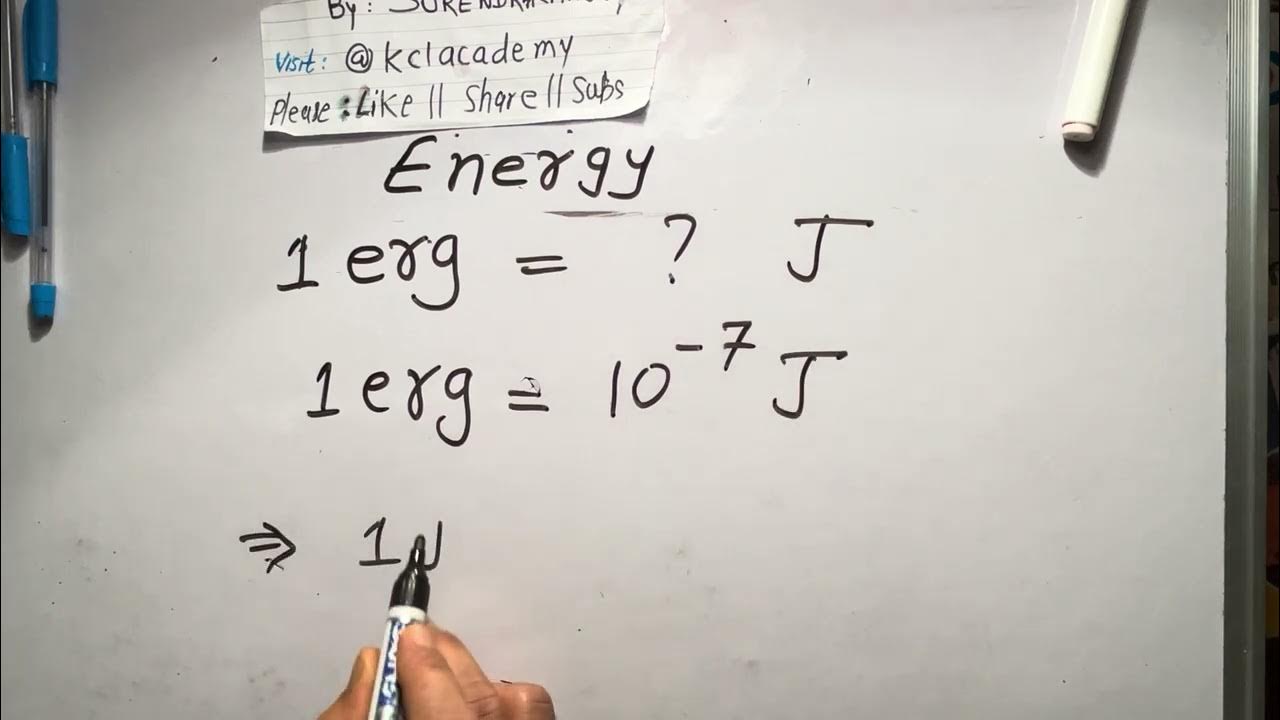 By:
Visit: @kclacademy
Please: Like || Share || Subs
Energy
1 erg = ? J
1 erg = 10⁻⁷ J
⇒ 1